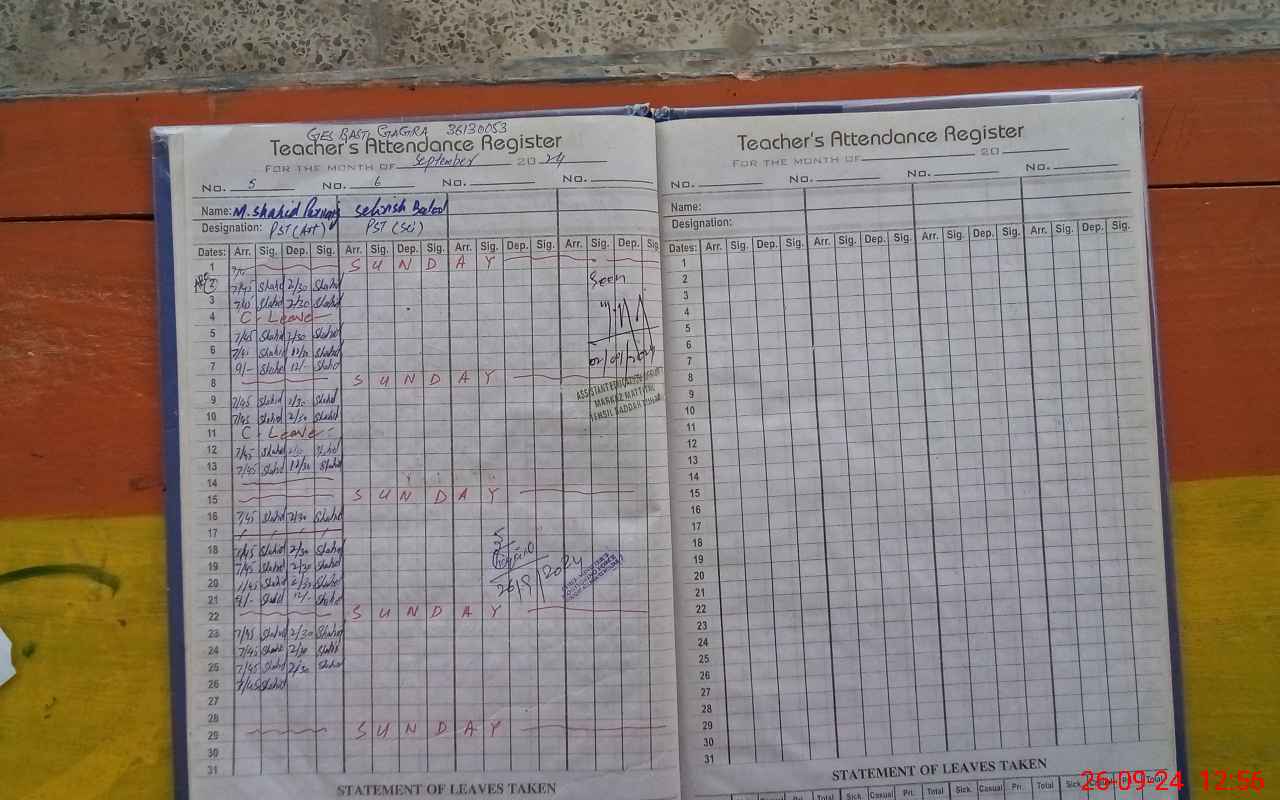 GES BASTI GAGRA 36130053
Teacher's Attendance Register
FOR THE MONTH OF September 2024
No. 5 No. 6 No. No.
Name: M. Shahid
Designation: PST (Art) PST (Sci)
Dates: Arr. Sig. Dep. Sig. Arr. Sig. Dep. Sig. Arr. Sig. Dep. Sig. Arr. Sig. Dep. Sig.
1 SUNDAY
2 7/45 Shahid 2/30 Shahid
Seen
3 Shahid 2/30 Shahid
4 C- Leave
5 7/45 Shahid 2/30 Shahid
6 7/45 Shahid 12/30 Shahid
02/09/2024
7 9/- Shahid 12/- Shahid
8 SUNDAY
ASSISTANT EDUCATION
9 7/45 Shahid 2/30 Shahid
MARKAZ
10 7/45 Shahid 2/30 Shahid
TEHSIL SADDAR
11 C- Leave
12 7/45 Shahid 2/30 Shahid
13 7/45 Shahid 12/30 Shahid
14
15 SUNDAY
16 7/45 Shahid 2/30 Shahid
17
18 7/45 Shahid 2/30 Shahid
19 7/45 Shahid 2/30 Shahid
20 7/45 Shahid 2/30 Shahid
26/9/2024
21 9/- Shahid 12/- Shahid
22 SUNDAY
23 7/45 Shahid 2/30 Shahid
24 7/45 Shahid 2/30 Shahid
25 7/45 Shahid 2/30 Shahid
26 7/45 Shahid
27
28
29 SUNDAY
30
31
STATEMENT OF LEAVES TAKEN
Teacher's Attendance Register
FOR THE MONTH OF 20
No. No. No. No.
Name:
Designation:
Dates: Arr. Sig. Dep. Sig. Arr. Sig. Dep. Sig. Arr. Sig. Dep. Sig. Arr. Sig. Dep. Sig.
1
2
3
4
5
6
7
8
9
10
11
12
13
14
15
16
17
18
19
20
21
22
23
24
25
26
27
28
29
30
31
STATEMENT OF LEAVES TAKEN
Casual Pri. Total Sick. Casual Pri. Total Sick. Casual Pri. Total Sick. Casual Pri. Total
26-09-24 12:56